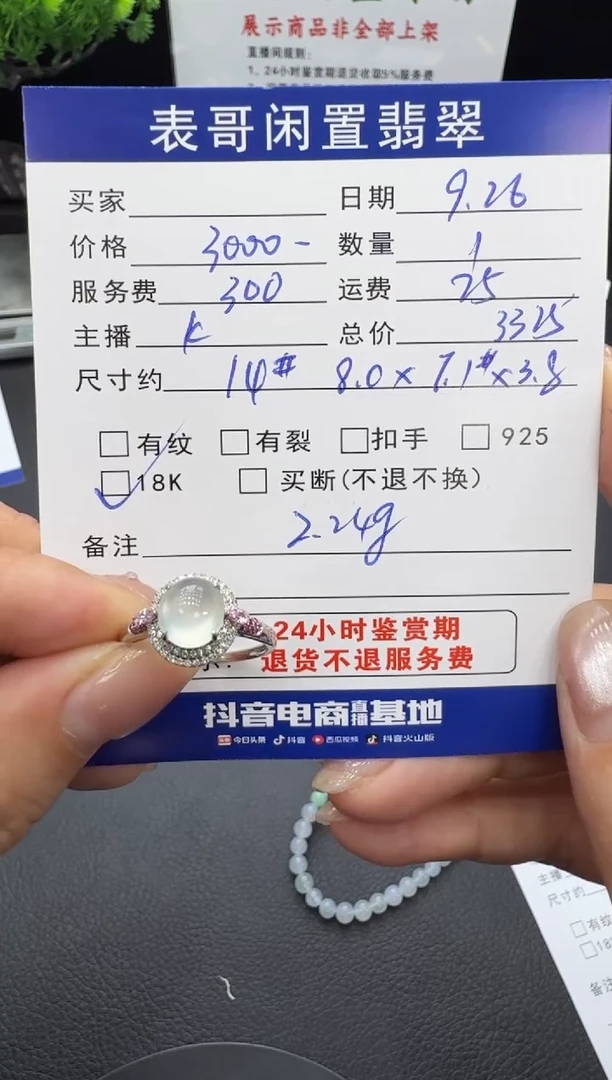 展示商品非全部上架
直播间规则：
1、24小时鉴赏期退货收取5%服务费
表哥闲置翡翠
买家 日期 9.26
价格 3000- 数量 1
服务费 300 运费 25
主播 K 总价 3325
尺寸约 14# 8.0×7.1#×3.8
□有纹 □有裂 □扣手 □925
□18K □买断(不退不换)
备注 2.24g
24小时鉴赏期
退货不退服务费
抖音电商直播基地
头条 今日头条 抖音 西瓜视频 抖音火山版
主播
尺寸约
□有纹
□18
备注